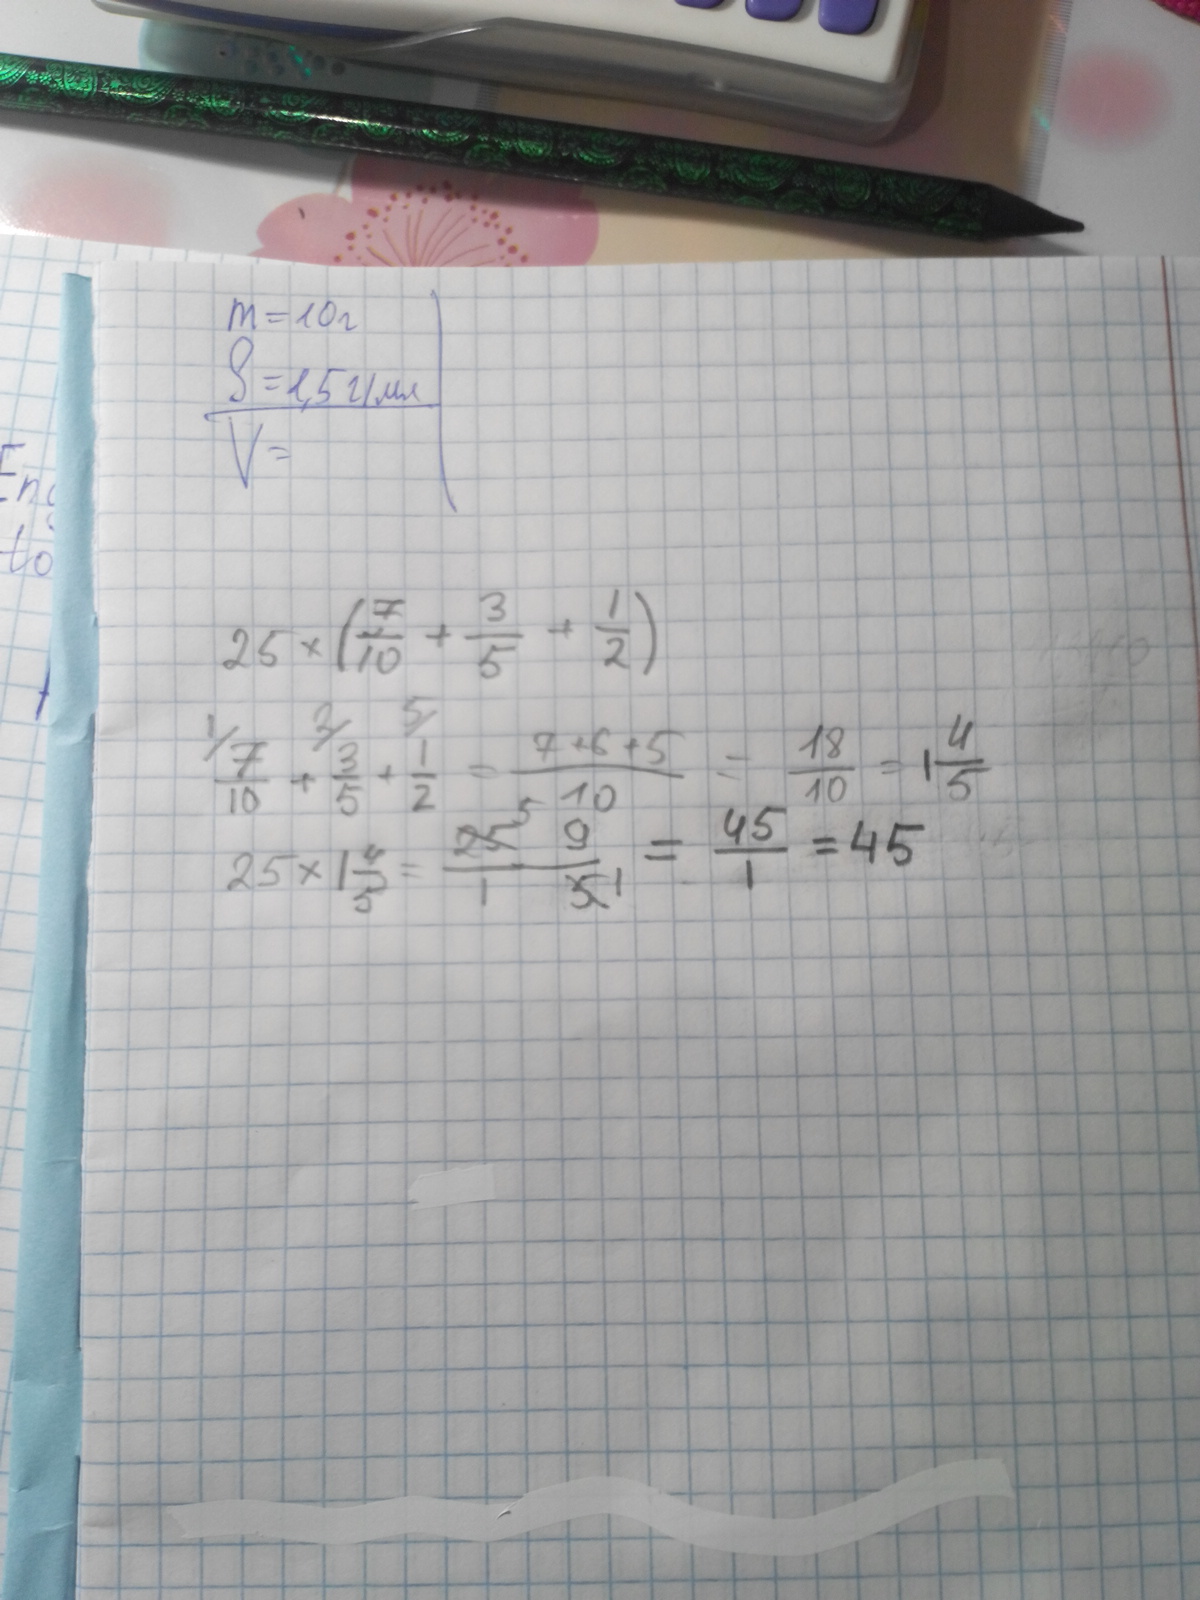 m = 10г
ρ = 1,5 г/мл
V =
25 × (7/10 + 3/5 + 1/2)
1/ 7/10 + 2/ 3/5 + 5/ 1/2 = 7+6+5/10 = 18/10 = 1 4/5
25 × 1 4/5 = 25 5 9/1 5 1 = 45/1 = 45
to